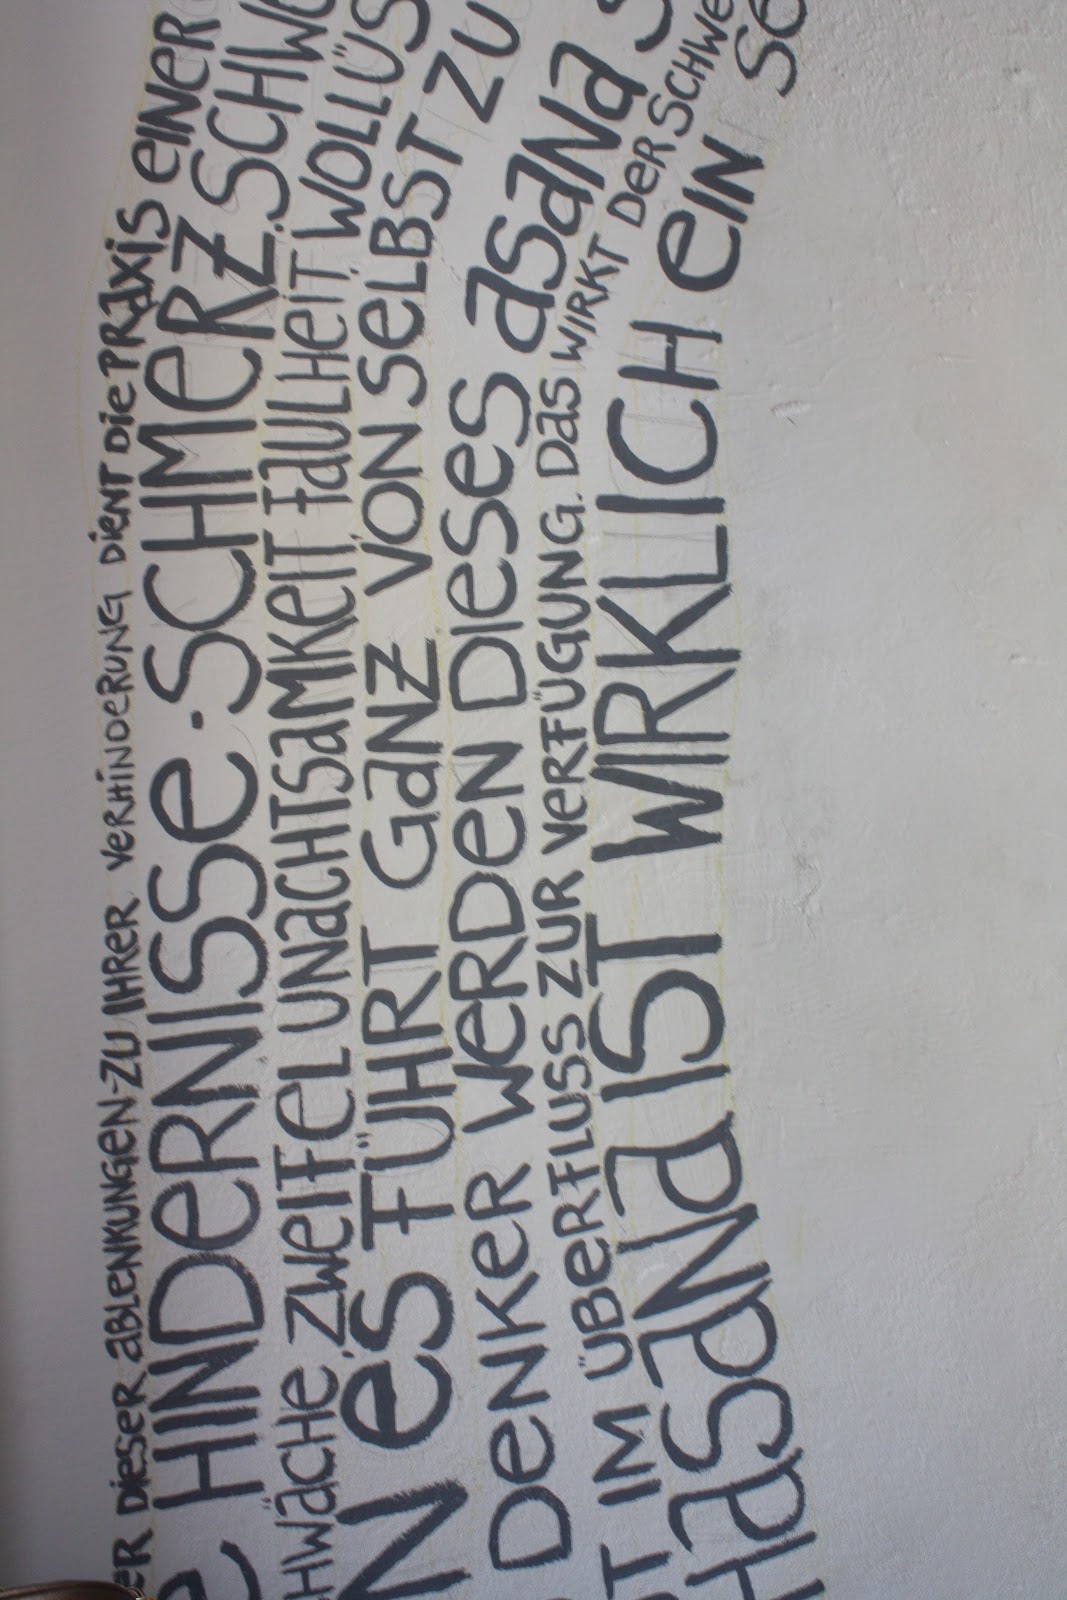 ER DIESER ABLENKUNGEN-ZU IHRER VERHINDERUNG DIENT DIE PRAXIS EINER
HINDERNISSE.SCHMERZ.SCHW
HWÄCHE, ZWEIFEL UNACHTSAMKEIT FAULHEIT WOLLÜS
N ES FÜHRT GANZ VON SELBST ZU
DENKER WERDEN DIESES ASANA S
T IM ÜBERFLUSS ZUR VERFÜGUNG. DAS WIRKT DER SCHWE
HASANA IST WIRKLICH EIN SE